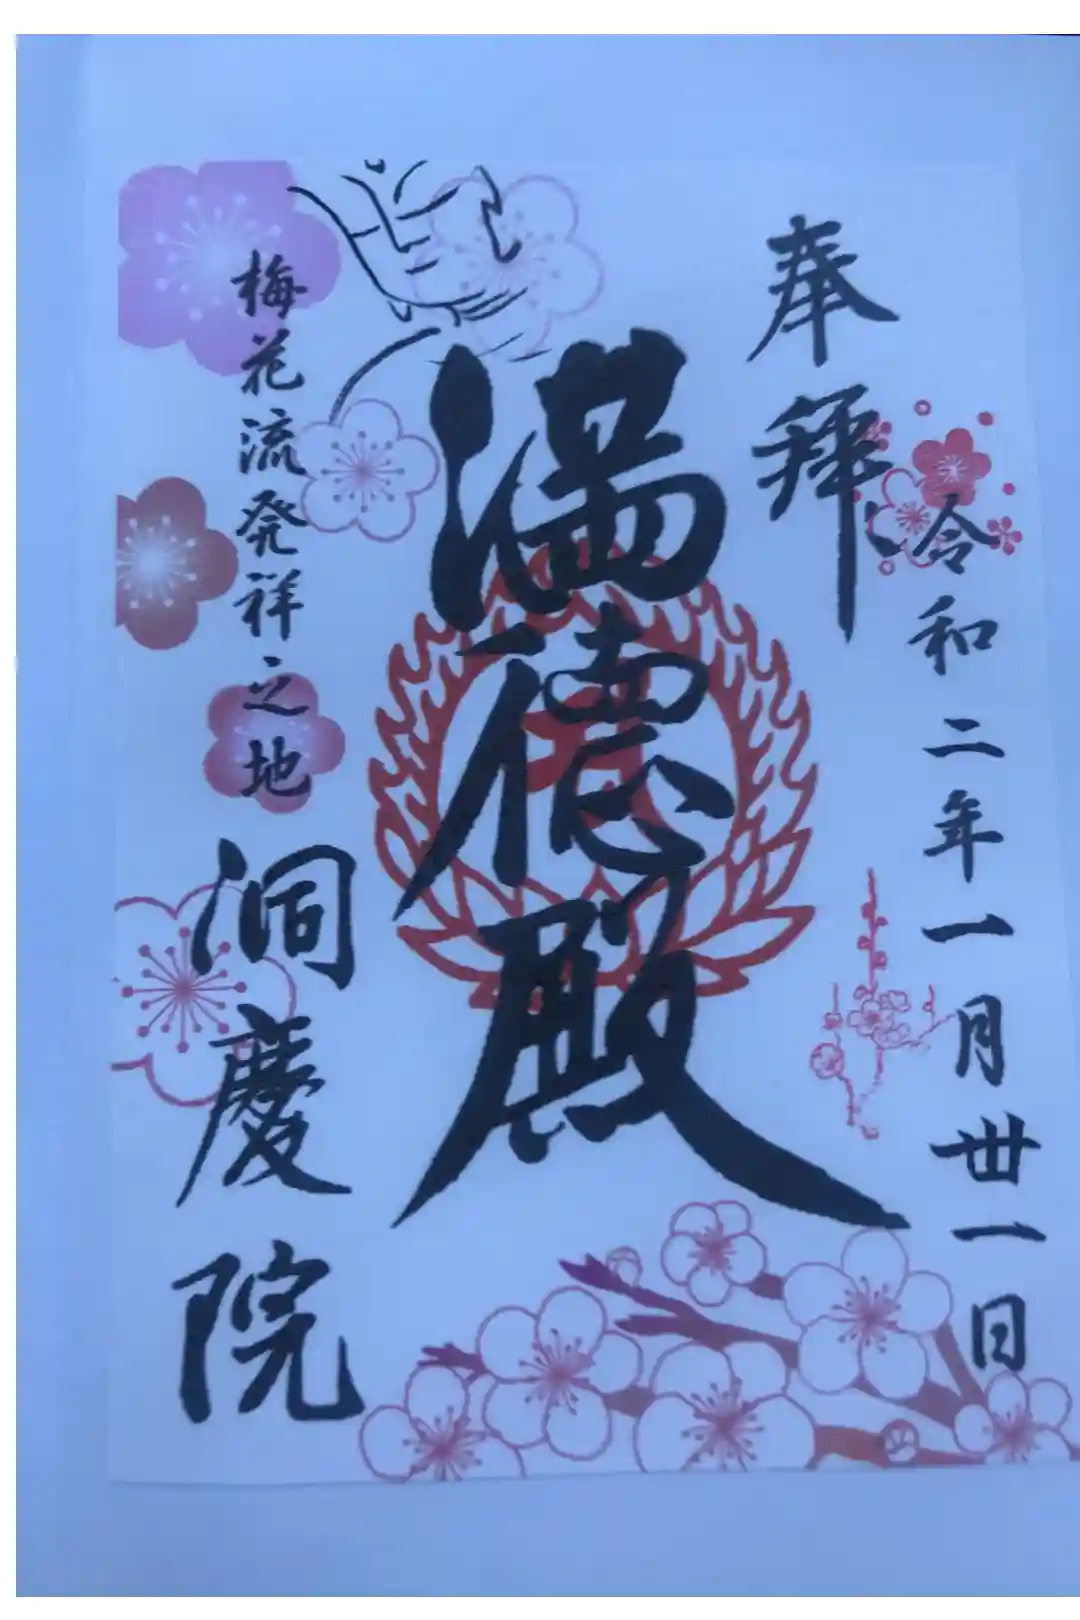 奉拜
令和二年一月卅一日
満德殿
梅花流発祥之地
洞慶院